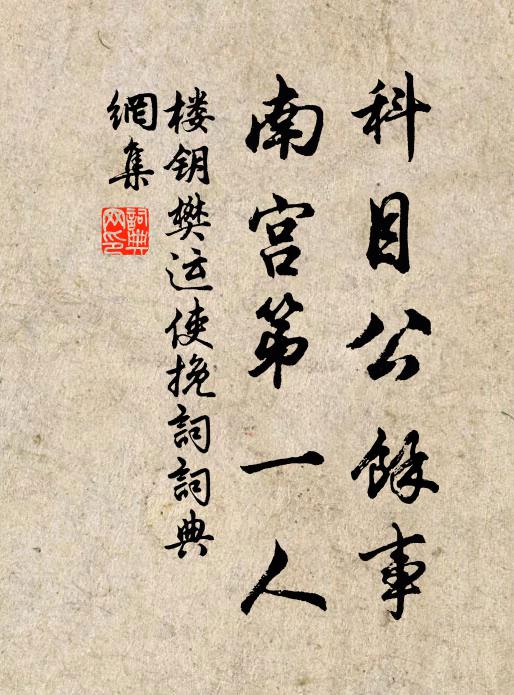 科目公餘事
南宫第一人
楼钥樊运使挽詞詞典
網集
詞典網印